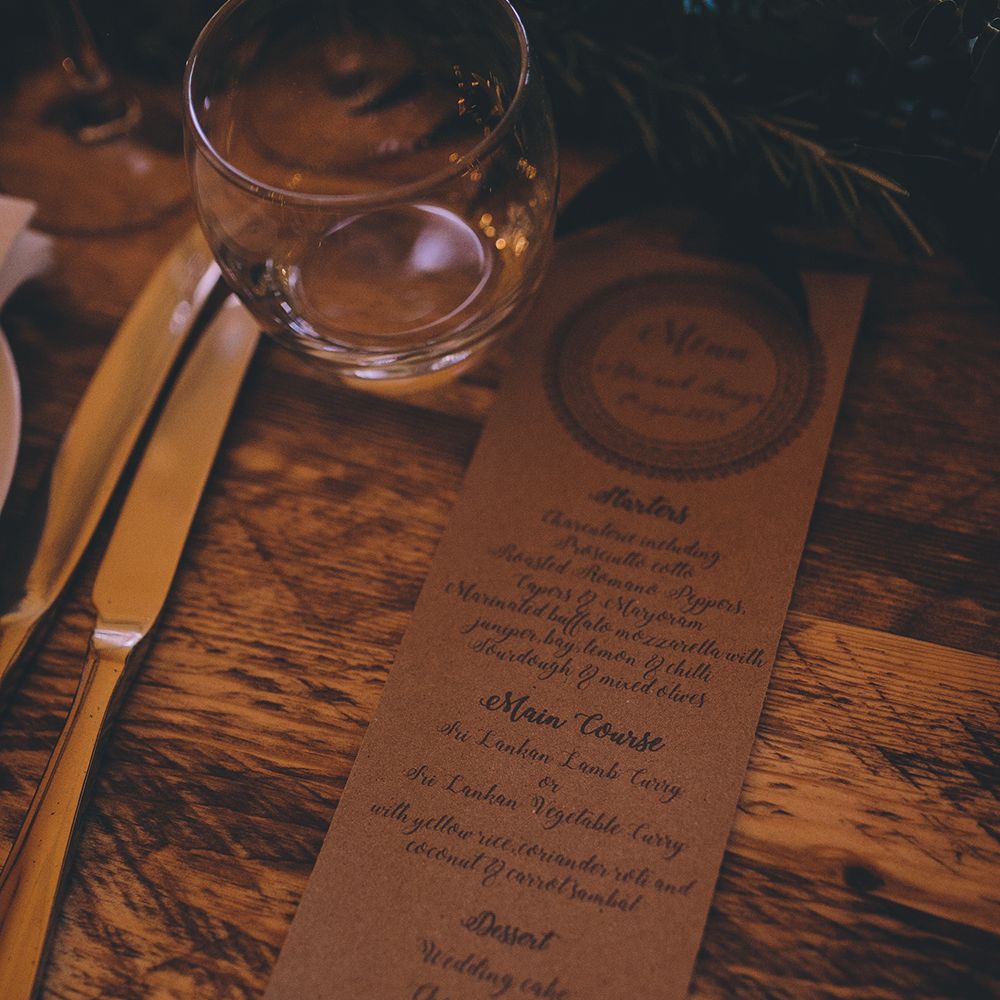 Menu
and
Starters
Charcuterie including
Prosciutto cotto
Roasted Romano Peppers,
Capers & Marjoram
Marinated buffalo mozzarella with
juniper, bay, lemon & chilli
Sourdough & mixed olives
Main Course
Sri Lankan Lamb Curry
or
Sri Lankan Vegetable Curry
with yellow rice, coriander roti and
coconut & carrot sambal
Dessert
Wedding cake